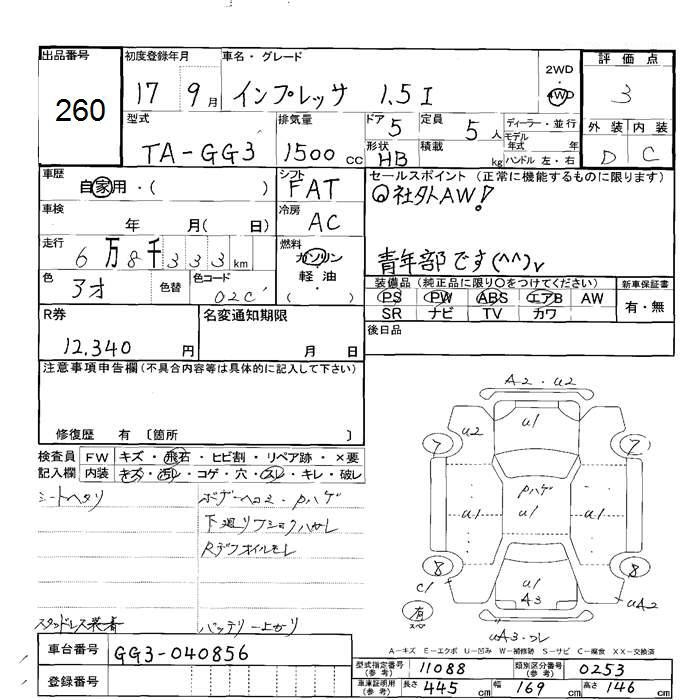 出品番号
260
初度登録年月
17 9月
車名・グレード
インプレッサ 1.5I
2WD
・
4WD
評価点
3
外装 内装
D C
型式
TA-GG3
排気量
1500cc
ドア
5
定員
5人
形状
HB
積載
kg
ディーラー・並行
モデル
年式 年
ハンドル 左・右
車歴
自家用・( )
シフト
FAT
車検
年 月( 日)
冷房
AC
走行
6万8千333km
燃料
ガソリン
軽油
( ・ )
色
アオ
色替
色コード
02C
セールスポイント (正常に機能するものに限ります)
社外AW!
青年部です(^^)v
装備品 (純正品に限り○をつけてください)
PS PW ABS エアB AW
SR ナビ TV カワ
新車保証書
有・無
後日品
R券
12,340円
名変通知期限
月 日
注意事項申告欄 (不具合内容等は具体的に記入して下さい)
修復歴 有 〔箇所 〕
検査員
記入欄
FW キズ・飛石・ヒビ割・リペア跡・×要
内装 キズ・汚レ・コゲ・穴・スレ・キレ・破レ
シートヘタリ
ボデーヘコミ・Pハゲ
下廻りフショクハガレ
Rデフオイルモレ
スタッドレス装着
バッテリー上がり
A2・U2
U2 U1
7 7
Pハゲ
U1 U1 U1
8 8
C1 U1 UA2
A3
有
スペア
UA3・コレ
A-キズ E-エクボ U-凹み W-補修跡 S-サビ C-腐食 XX-交換済
車台番号
GG3-040856
登録番号
型式指定番号
(参考)
11088
類別区分番号
(参考)
0253
車庫証明用
(参考)
長さ 445cm 幅 169cm 高さ 146cm